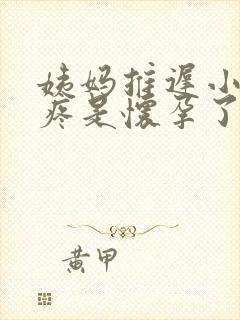 姨妈推迟小
疼是怀孕了
黄甲